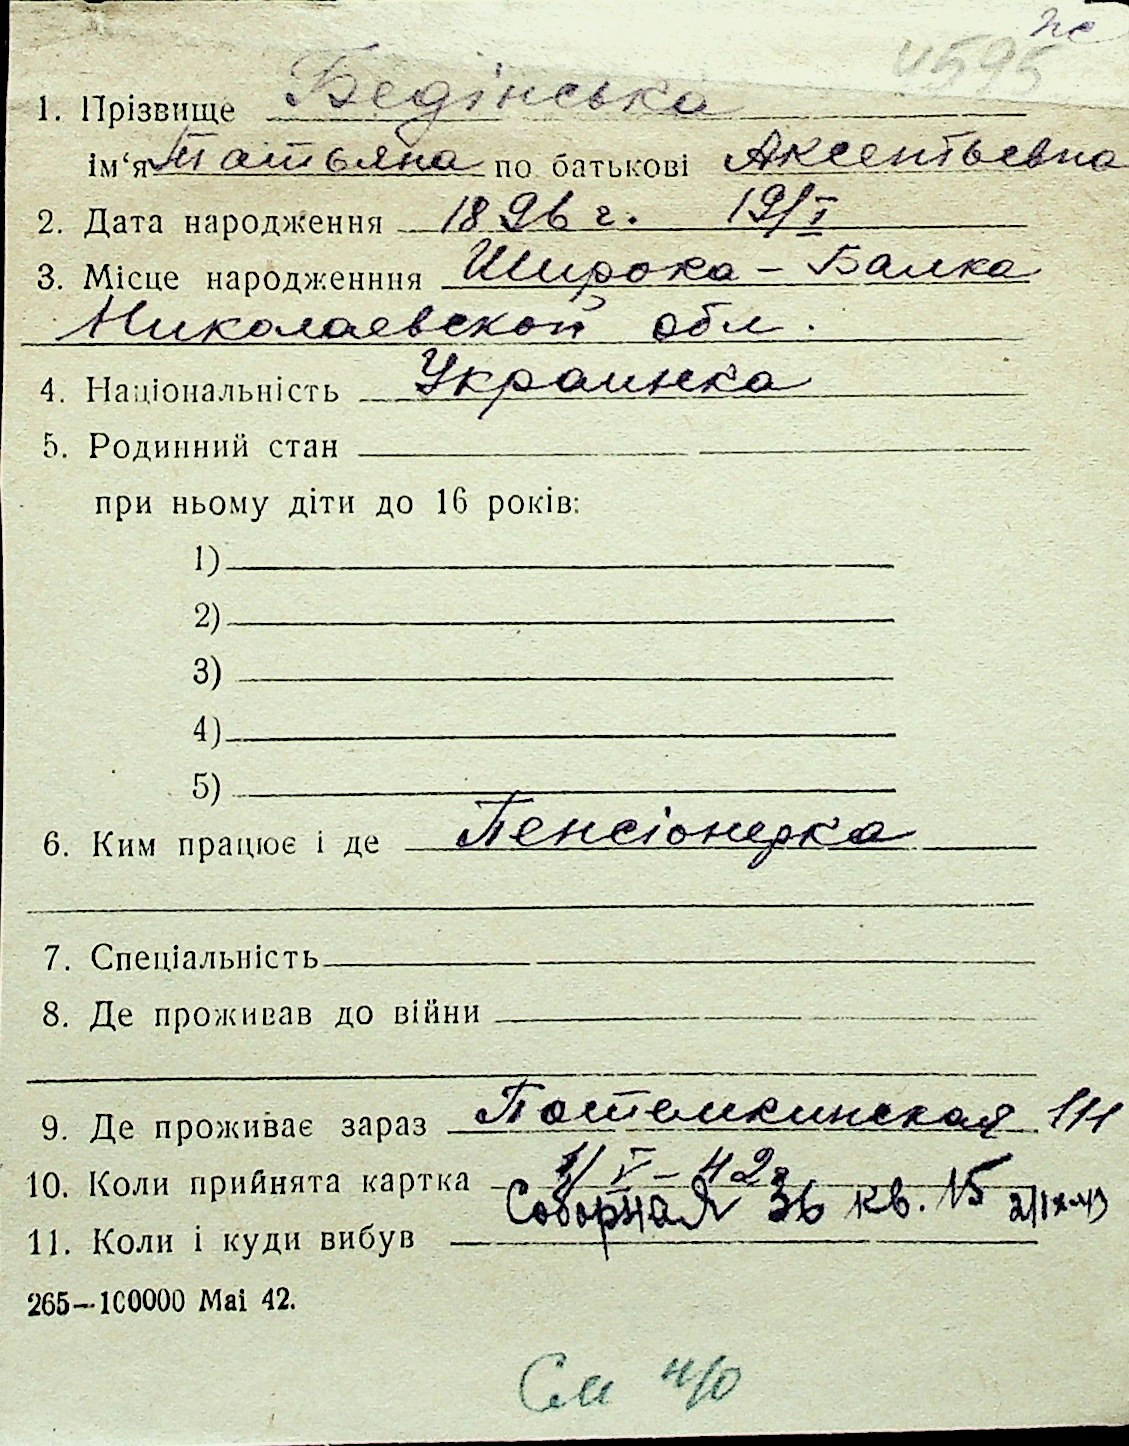 4595
1. Прізвище Бедінська
ім‘я Татьяна по батькові Аксентьевна
2. Дата народження 1896 г. 19/I
3. Місце народженння Широка – Балка
Николаевской обл.
4. Національність Украинка
5. Родинний стан
при ньому діти до 16 років:
1)
2)
3)
4)
5)
6. Ким працює і де Пенсіонерка
7. Спеціальність
8. Де проживав до війни
9. Де проживає зараз Потемкинская 111
10. Коли прийнята картка 1/V – 42
Соборная 36 кв. 15 2/IX-43
11. Коли і куди вибув
265—100000 Mai 42.
См н/о